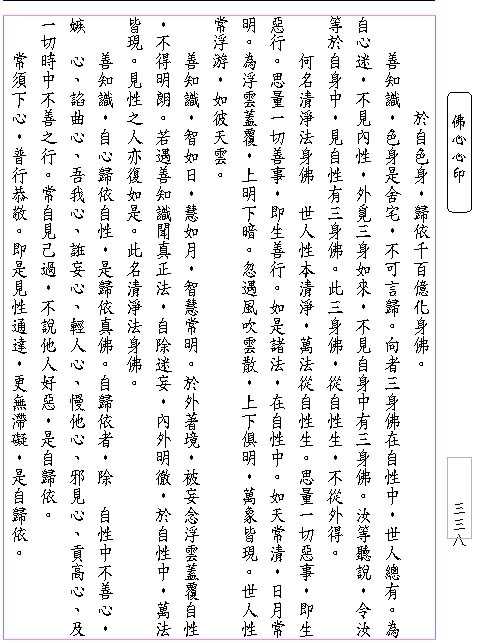 佛心心印
三三八
於自色身，歸依千百億化身佛。
善知識，色身是舍宅，不可言歸。向者三身佛在自性中，世人總有。為
自心迷，不見內性，外覓三身如來，不見自身中有三身佛。汝等聽說，令汝
等於自身中，見自性有三身佛。此三身佛，從自性生，不從外得。
何名清淨法身佛　世人性本清淨，萬法從自性生。思量一切惡事，即生
惡行。思量一切善事，即生善行。如是諸法，在自性中。如天常清，日月常
明。為浮雲蓋覆，上明下暗。忽遇風吹雲散，上下俱明，萬象皆現。世人性
常浮游，如彼天雲。
善知識，智如日，慧如月，智慧常明。於外著境，被妄念浮雲蓋覆自性
，不得明朗。若遇善知識聞真正法，自除迷妄，內外明徹，於自性中，萬法
皆現。見性之人亦復如是。此名清淨法身佛。
善知識，自心歸依自性，是歸依真佛。自歸依者，除　自性中不善心，
嫉　心、諂曲心、吾我心、誑妄心、輕人心、慢他心、邪見心、貢高心、及
一切時中不善之行。常自見己過，不說他人好惡，是自歸依。
常須下心，普行恭敬。即是見性通達，更無滯礙，是自歸依。